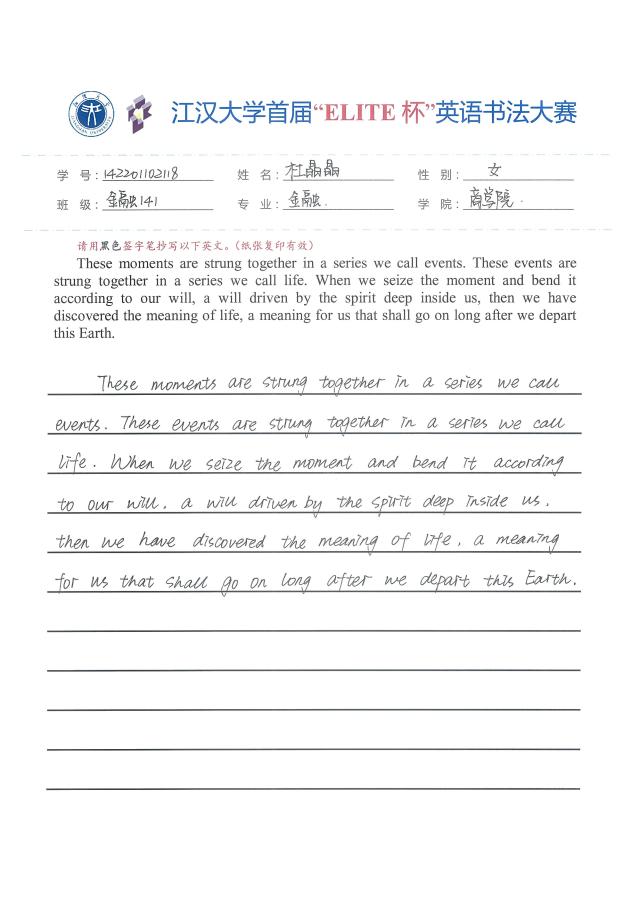 江汉大学首届“ELITE 杯”英语书法大赛
学 号：142201102118 姓 名：杜晶晶 性 别：女
班 级：金融141 专 业：金融. 学 院：商学院.
请用黑色签字笔抄写以下英文。（纸张复印有效）
These moments are strung together in a series we call events. These events are
strung together in a series we call life. When we seize the moment and bend it
according to our will, a will driven by the spirit deep inside us, then we have
discovered the meaning of life, a meaning for us that shall go on long after we depart
this Earth.
These moments are strung together in a series we call
events. These events are strung together in a series we call
life. When we seize the moment and bend it according
to our will, a will driven by the spirit deep inside us,
then we have discovered the meaning of life, a meaning
for us that shall go on long after we depart this Earth.